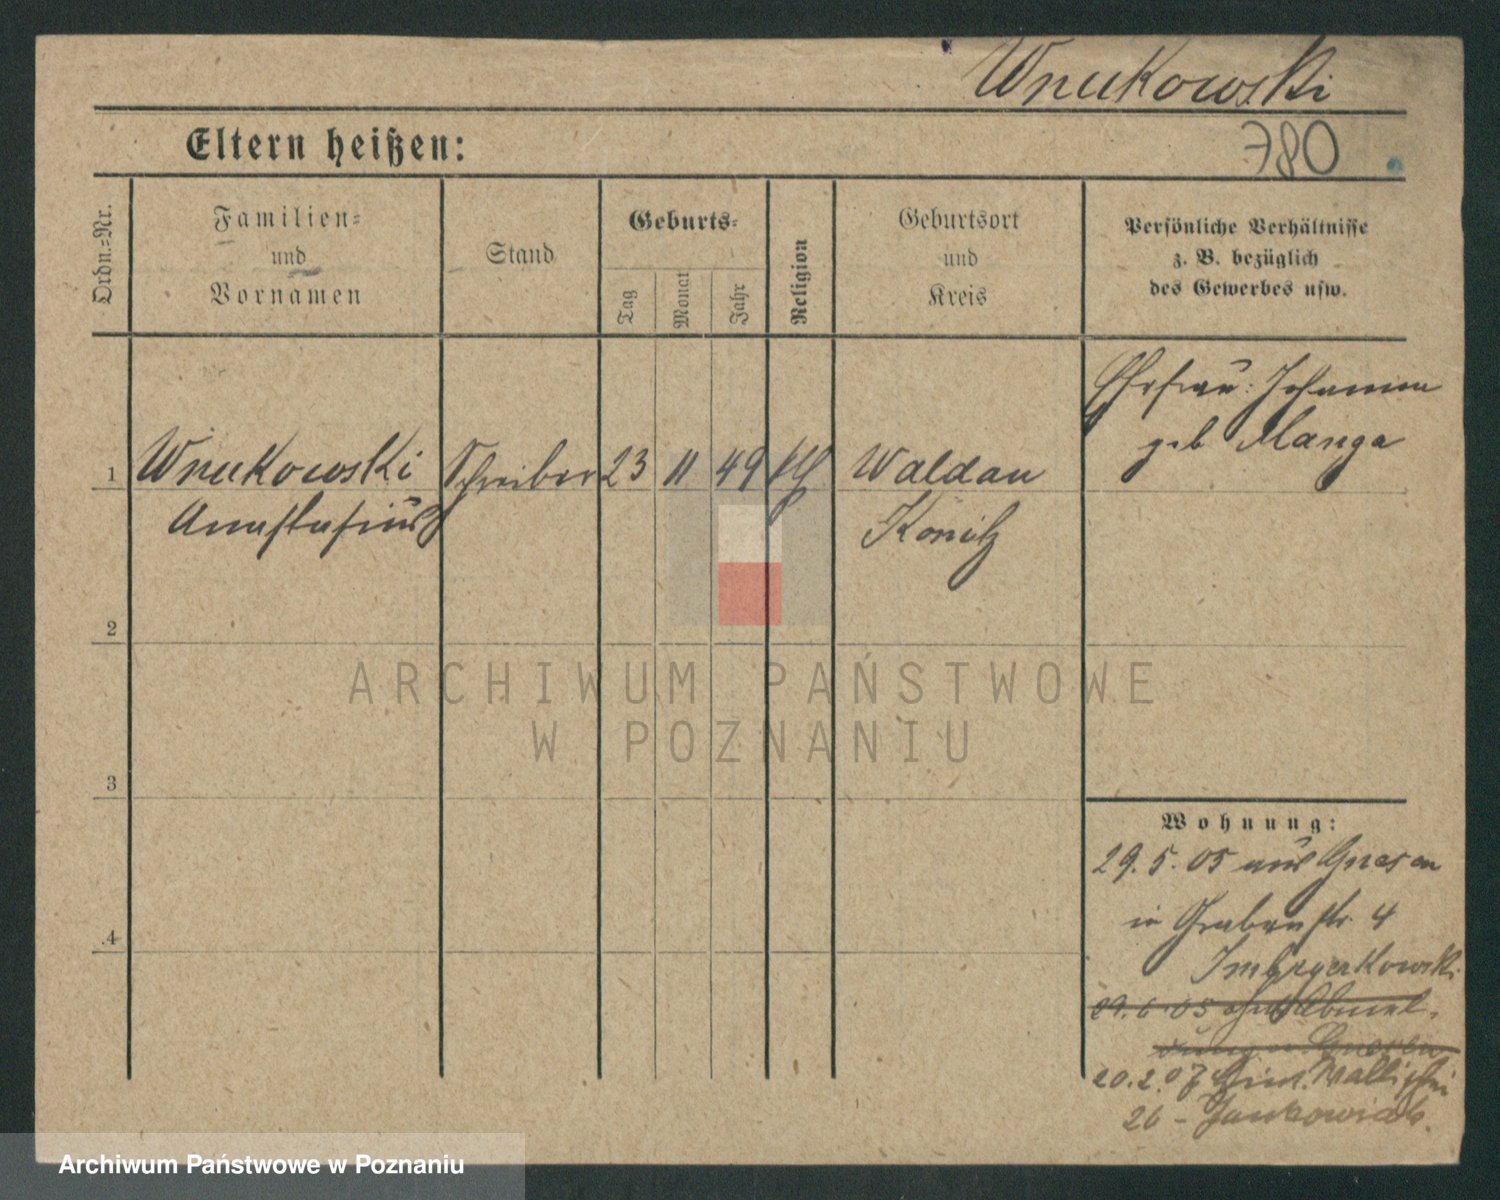 Wnukowski
Eltern heißen:
780
Ordn.-Nr.
Familien-
und
Vornamen
Stand
Geburts-
Tag
Monat
Jahr
Religion
Geburtsort
und
Kreis
Persönliche Verhältnisse
z. B. bezüglich
des Gewerbes usw.
Ehefrau: Johanna
geb Manga
1 Wnukowski Schreiber 23 11 49 kth Waldau
Anastasius Konitz
2
3
4
Wohnung:
29.5.05 aus Gnesen
in Grabenstr. 4
29.6.05 ohne Abmel-
dung n Gnesen
20.2.07 Wallischei
26 - Jankowiak.
ARCHIWUM PAŃSTWOWE
W POZNANIU
Archiwum Państwowe w Poznaniu